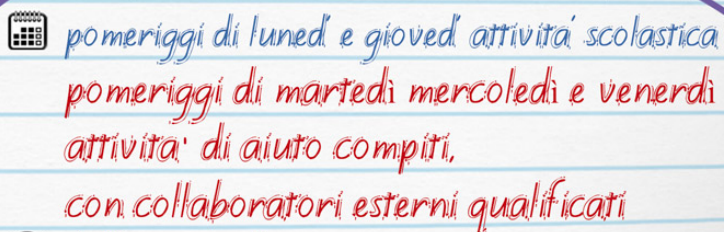 pomeriggi di luned' e gioved' attivita' scolastica
pomeriggi di martedì mercoledì e venerdì
attivita' di aiuto compiti,
con collaboratori esterni qualificati